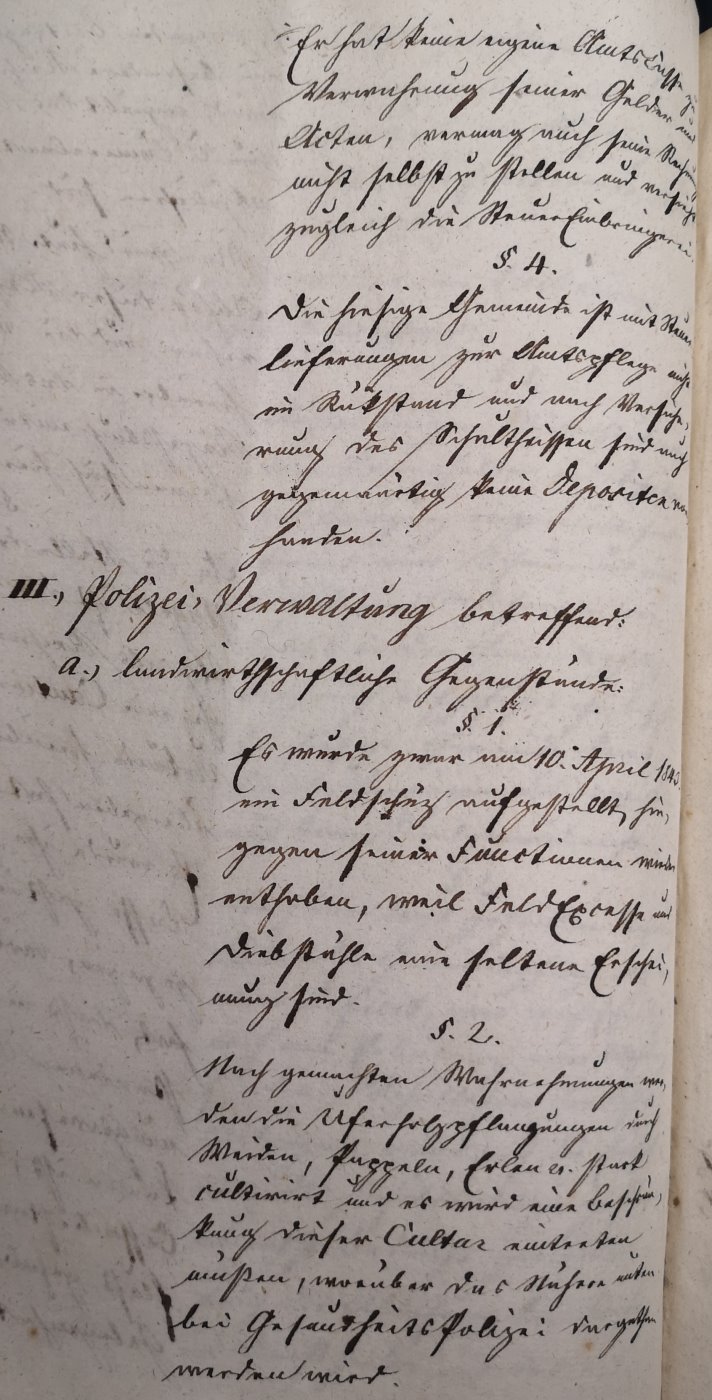 Er hat keine eigene Amtscasse zu
Verwahrung seiner Gelder und
Acten, vermag auch seine Rechnung
nicht selbst zu stellen und versieht
zugleich die SteuerEinbringerei.
§. 4.
Die hiesige Gemeinde ist mit Steuer
lieferungen zur Amtspflege nicht
im Rükstand und nach Versiche,
rung des Schultheissen sind auch
gegenwärtig keine Depositen vor
handen.
III., Polizei, Verwaltung betreffend:
a.) landwirthschaftliche Gegenstände:
§. 1.
Es wurde zwar am 10. April 1843.
ein Feldschüz aufgestellt, hin,
gegen seiner Functionen wieder
enthoben, weil FeldExcesse und
Diebstähle eine seltene Erschei,
nung sind.
§. 2.
Nach gemachten Wahrnehmungen wer,
den die Uferholzpflanzungen durch
Weiden, Pappeln, Erlen u. stark
cultivirt und es wird eine Beschrän,
kung dieser Cultur eintreten
müßen, worüber das Nähere unten
bei GesundheitsPolizei dargethan
werden wird.